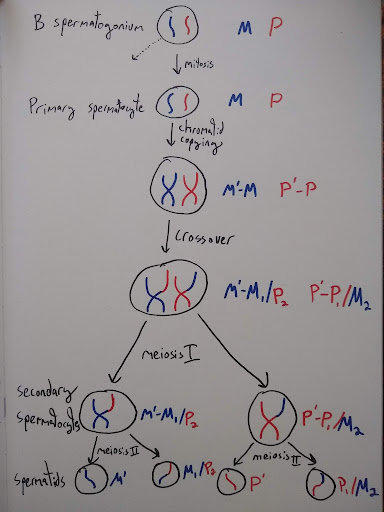 B spermatogonium M P
mitosis
Primary spermatocyte M P
chromatid
copying
M'-M P'-P
Crossover
M'-M₁/P₂ P'-P₁/M₂
meiosis I
secondary
spermatocytes M'-M₁/P₂ P'-P₁/M₂
meiosis II meiosis II
spermatids M' M₁/P₂ P' P₁/M₂